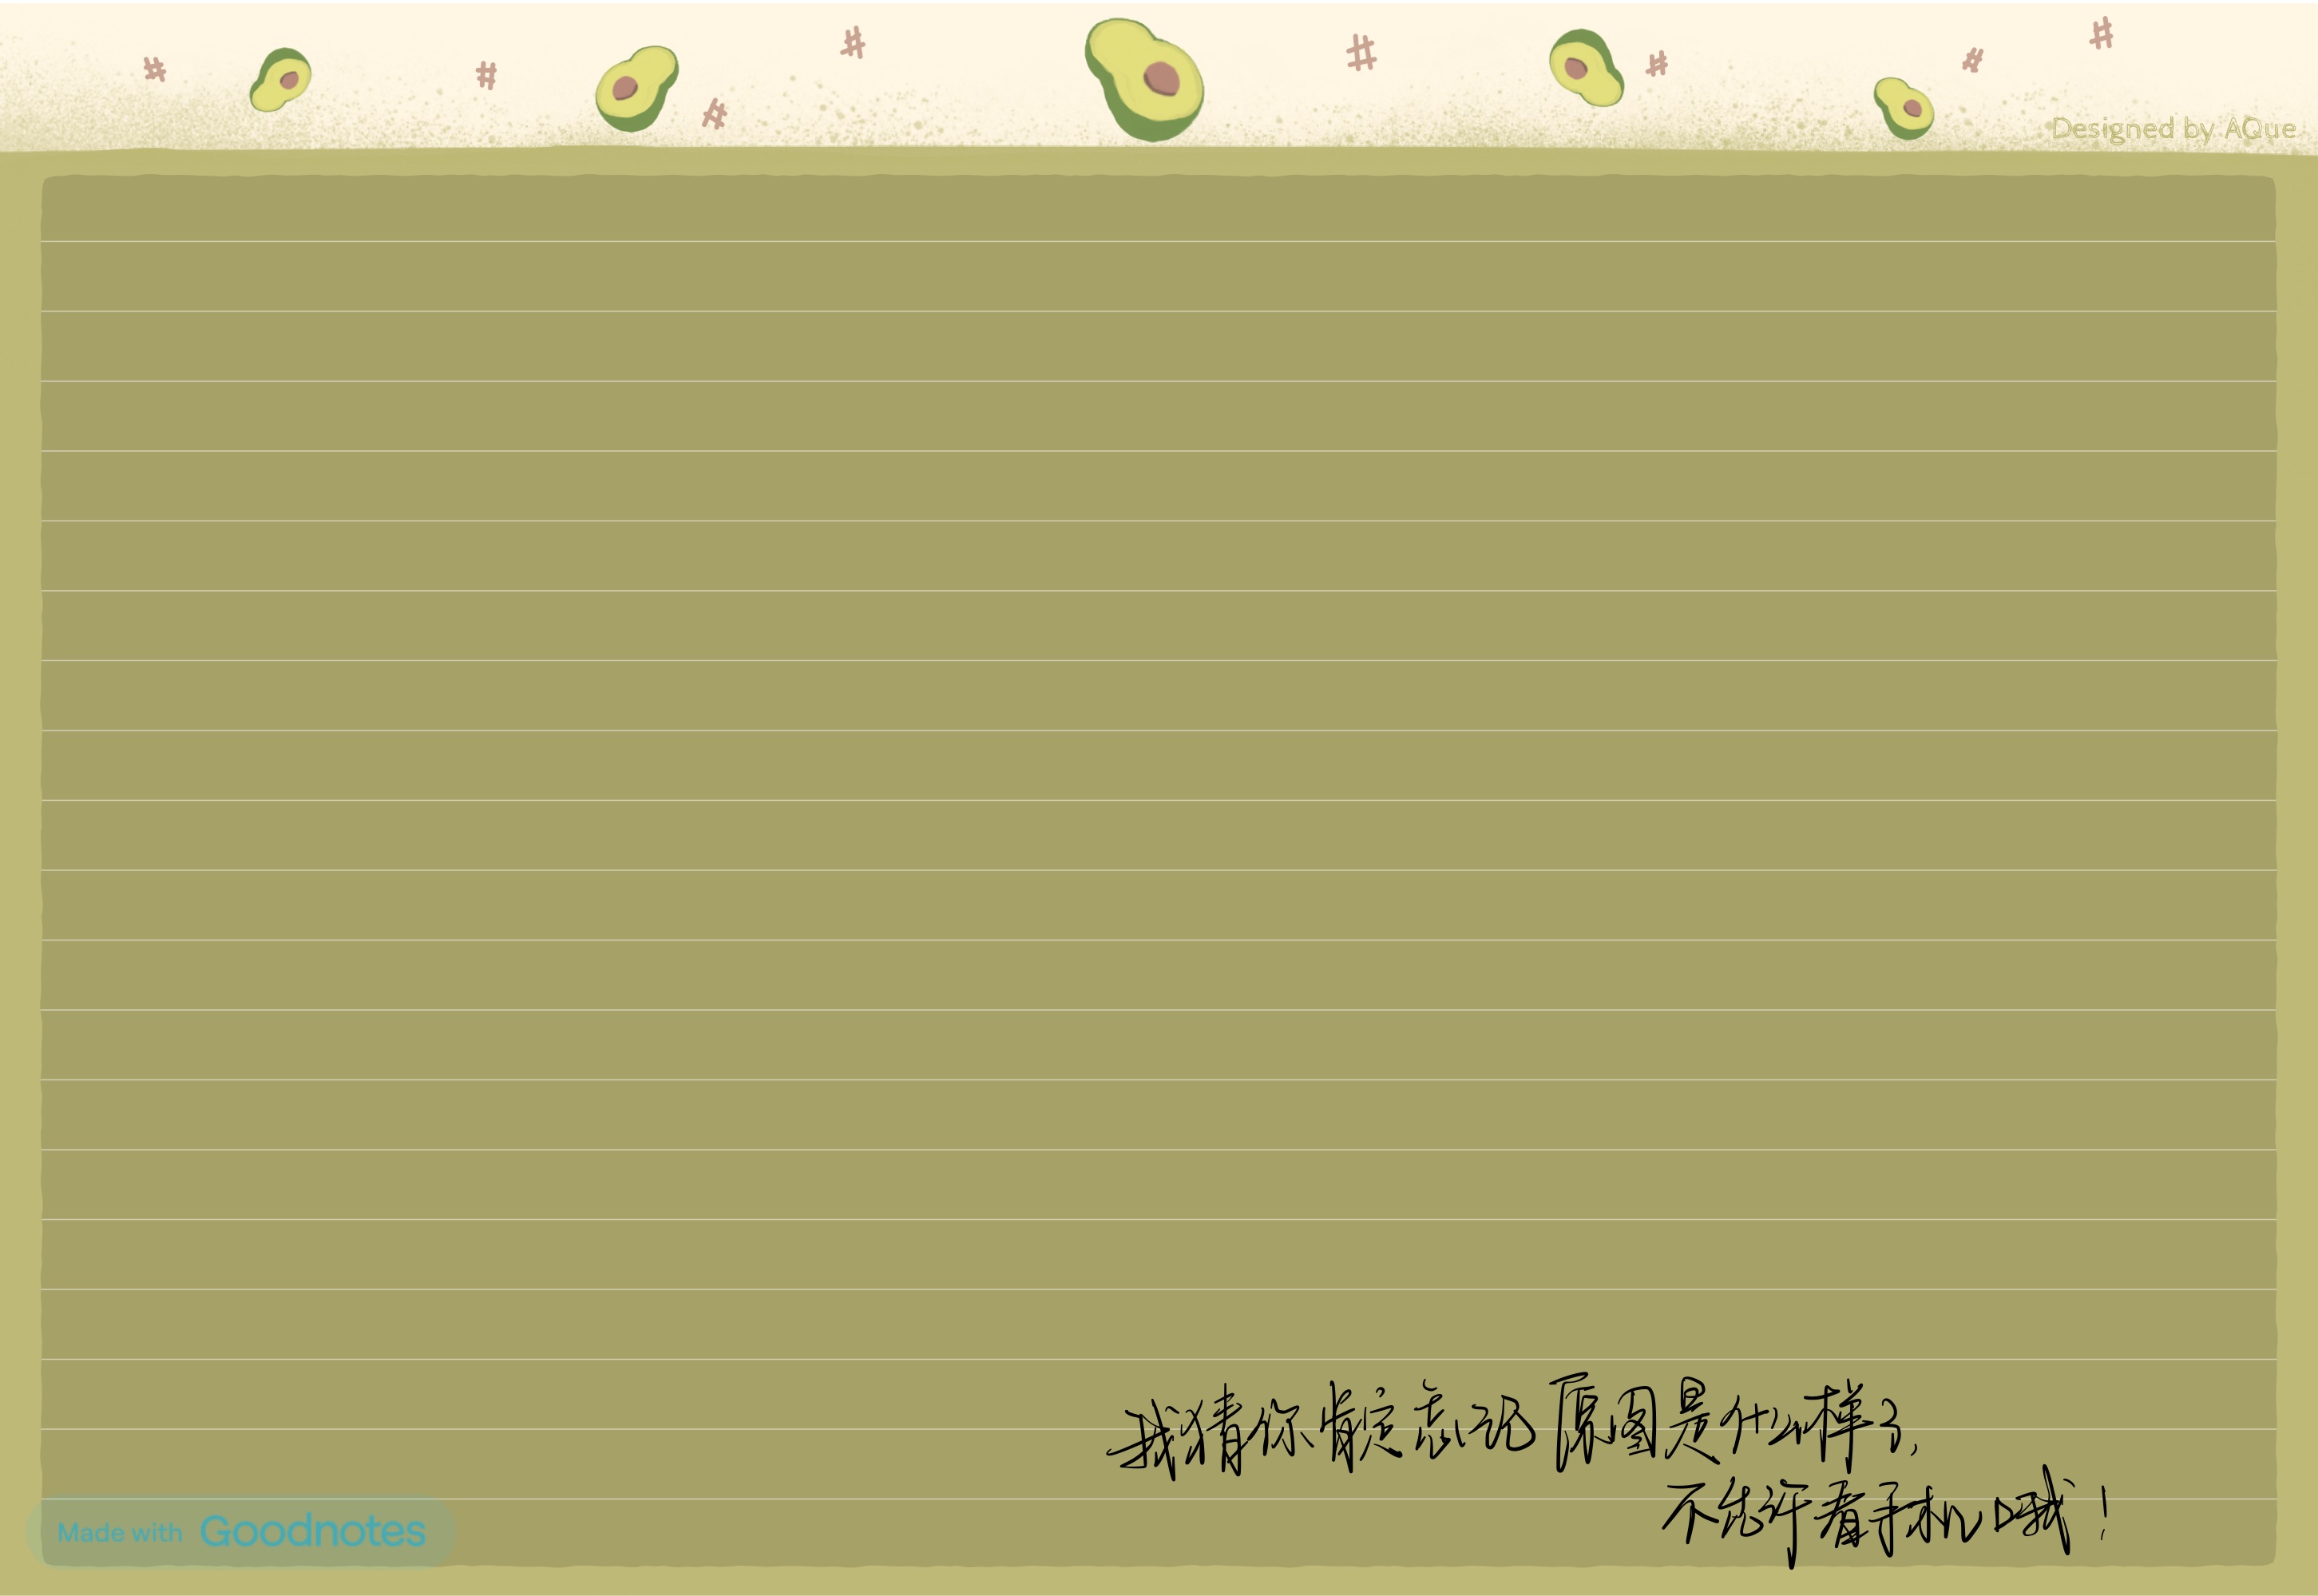 Designed by AQue
我猜你肯定忘记原图是什么样了,
不能说看手机哦!
Made with Goodnotes